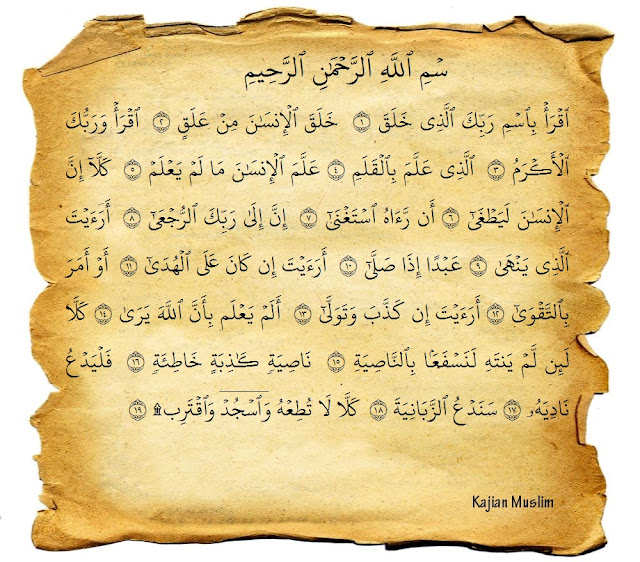 سۡمِ ٱللَّهِ ٱلرَّحۡمَٰنِ ٱلرَّحِيمِ
ٱقۡرَأۡ بِٱسۡمِ رَبِّكَ ٱلَّذِي خَلَقَ ١ خَلَقَ ٱلۡإِنسَٰنَ مِنۡ عَلَقٍ ٢ ٱقۡرَأۡ وَرَبُّكَ
ٱلۡأَكۡرَمُ ٣ ٱلَّذِي عَلَّمَ بِٱلۡقَلَمِ ٤ عَلَّمَ ٱلۡإِنسَٰنَ مَا لَمۡ يَعۡلَمۡ ٥ كَلَّآ إِنَّ
ٱلۡإِنسَٰنَ لَيَطۡغَىٰٓ ٦ أَن رَّءَاهُ ٱسۡتَغۡنَىٰٓ ٧ إِنَّ إِلَىٰ رَبِّكَ ٱلرُّجۡعَىٰٓ ٨ أَرَءَيۡتَ
ٱلَّذِي يَنۡهَىٰ ٩ عَبۡدًا إِذَا صَلَّىٰٓ ١٠ أَرَءَيۡتَ إِن كَانَ عَلَى ٱلۡهُدَىٰٓ ١١ أَوۡ أَمَرَ
بِٱلتَّقۡوَىٰٓ ١٢ أَرَءَيۡتَ إِن كَذَّبَ وَتَوَلَّىٰٓ ١٣ أَلَمۡ يَعۡلَم بِأَنَّ ٱللَّهَ يَرَىٰ ١٤ كَلَّا
لَئِن لَّمۡ يَنتَهِ لَنَسۡفَعَۢا بِٱلنَّاصِيَةِ ١٥ نَاصِيَةٖ كَٰذِبَةٍ خَاطِئَةٖ ١٦ فَلۡيَدۡعُ
نَادِيَهُۥ ١٧ سَنَدۡعُ ٱلزَّبَانِيَةَ ١٨ كَلَّا لَا تُطِعۡهُ وَٱسۡجُدۡۤ وَٱقۡتَرِب۩ ١٩
Kajian Muslim